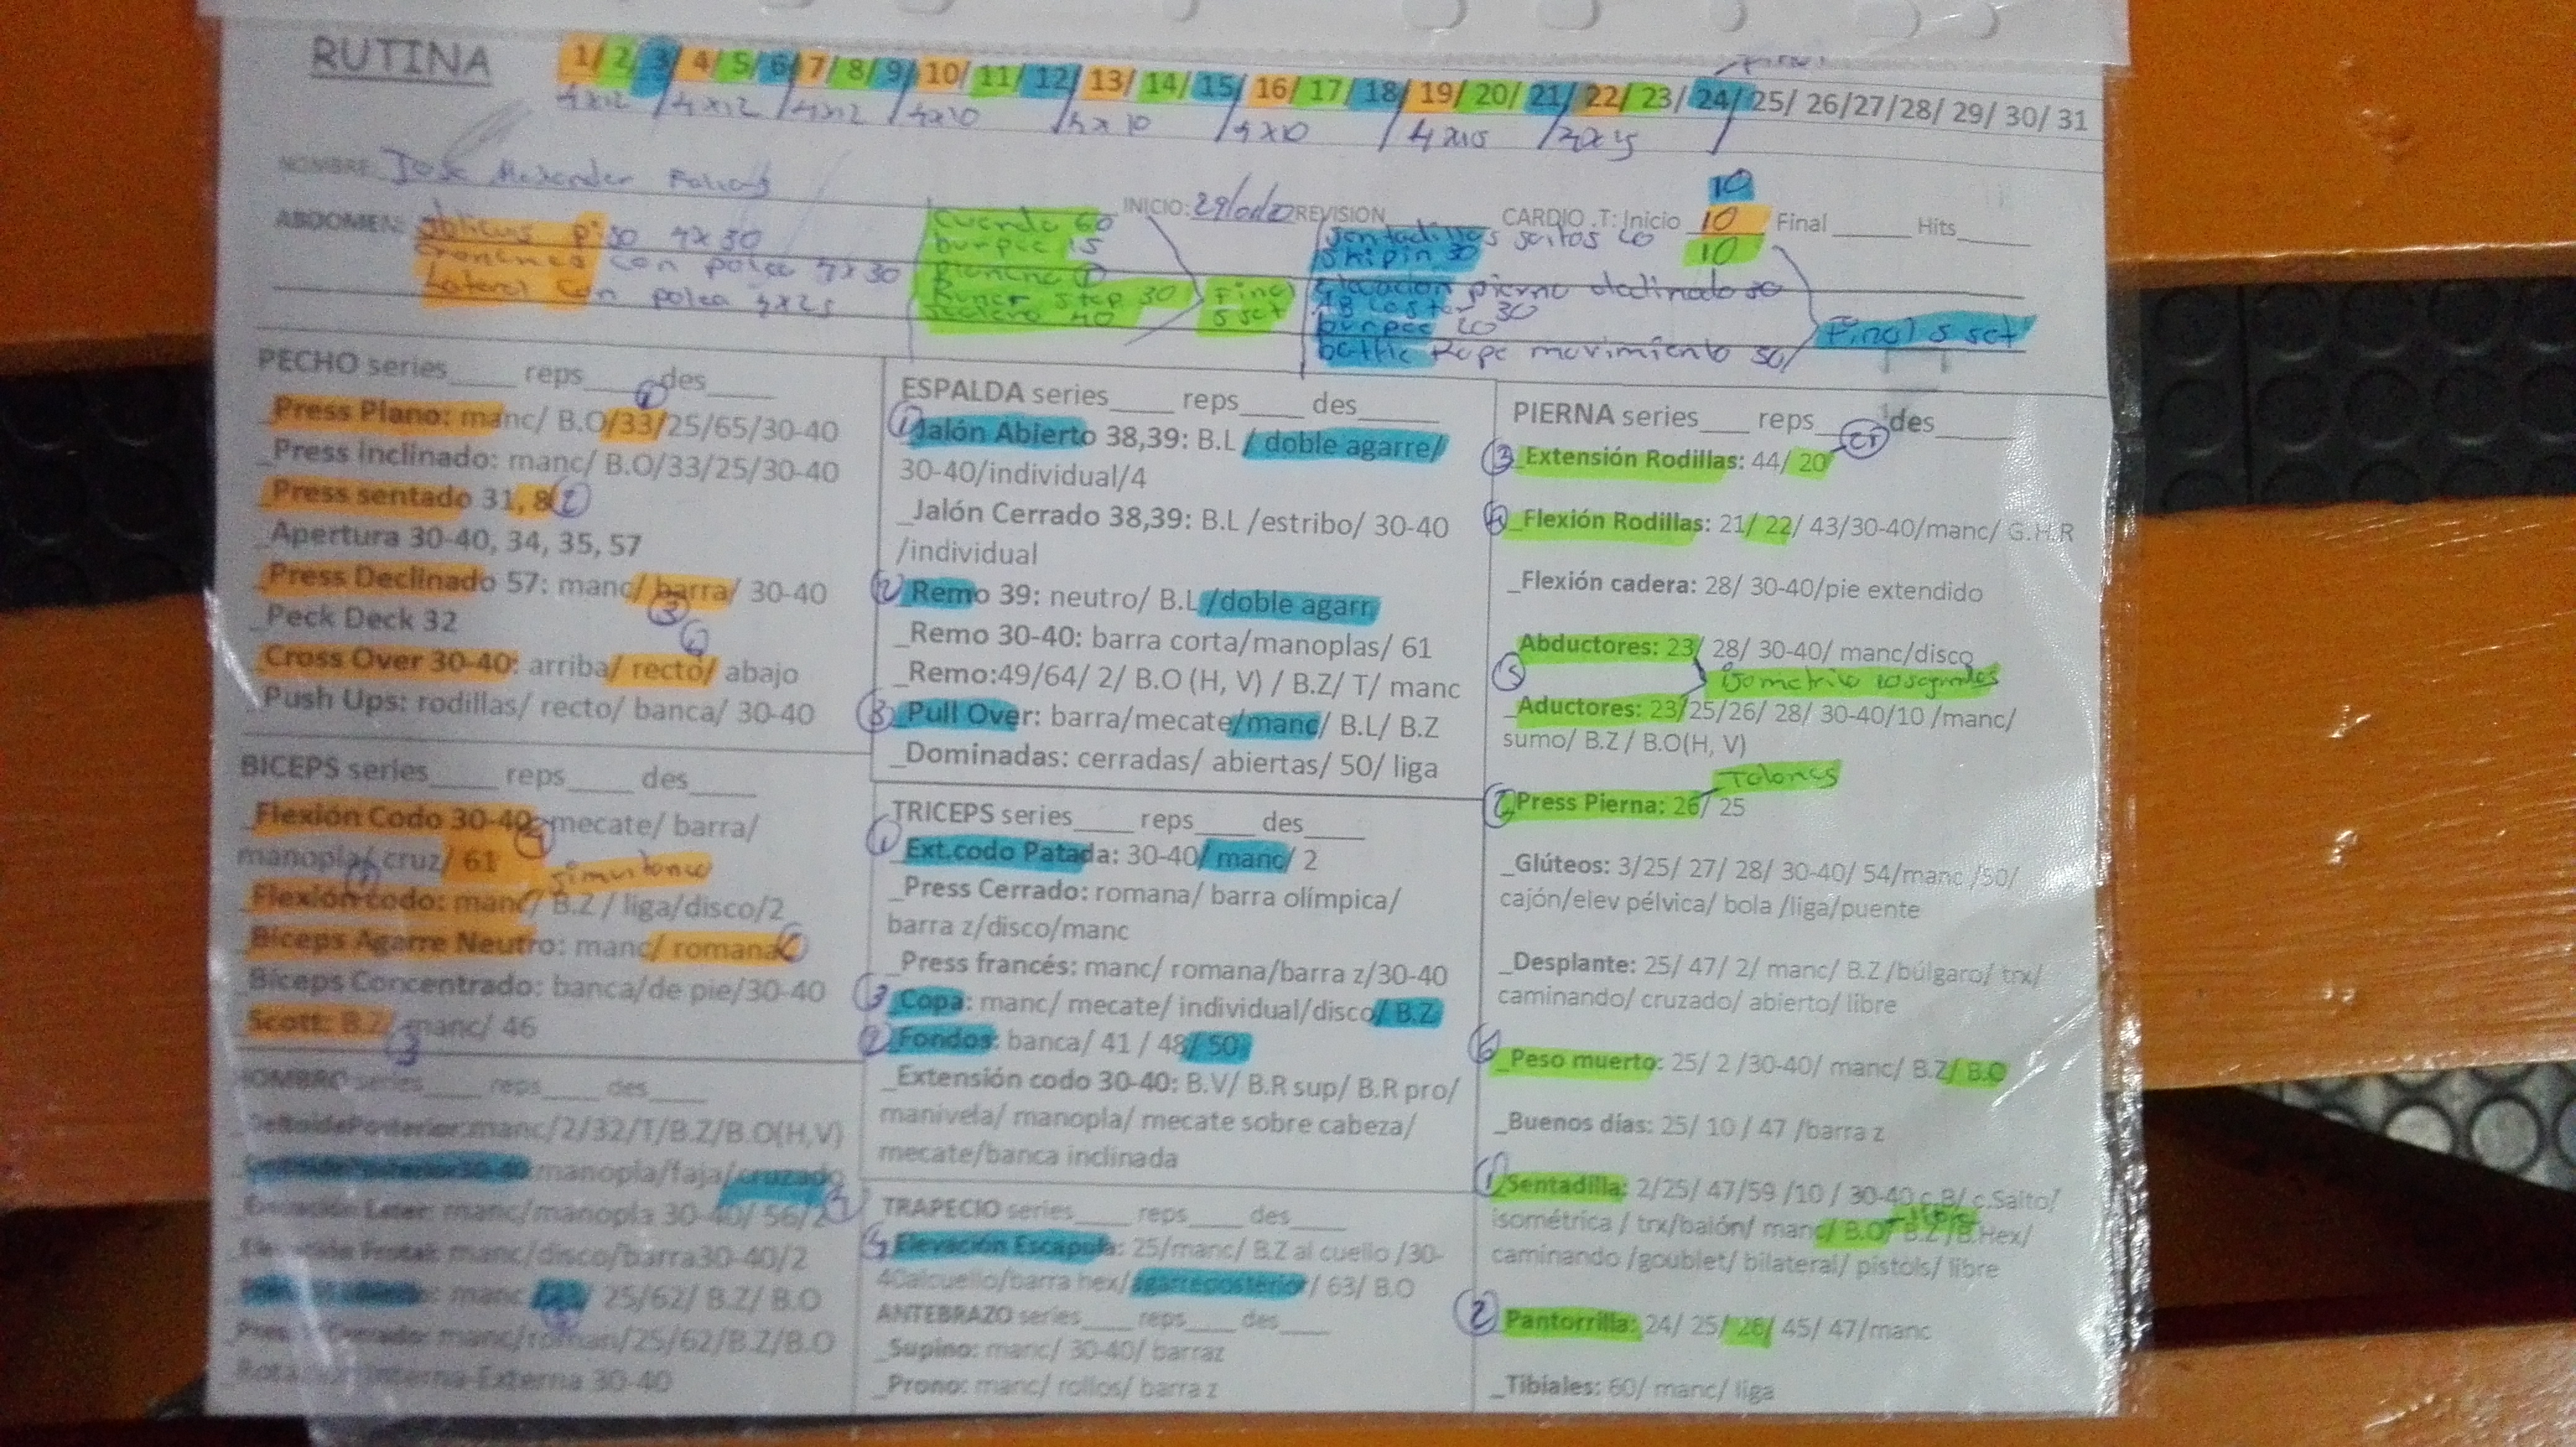 RUTINA 1/ 2/ 3/ 4/ 5/ 6/ 7/ 8/ 9/ 10/ 11/ 12/ 13/ 14/ 15/ 16/ 17/ 18/ 19/ 20/ 21/ 22/ 23/ 24/ 25/ 26/27/28/ 29/ 30/ 31
4x12 / 4x12 / 4x12 / 4x10 / 4x10 / 4x10 / 4x15 / 4x15
NOMBRE: Jose Alexander
INICIO: REVISION CARDIO .T: Inicio 10 10 10 Final Hits
ABDOMEN: oblicuos piso 4x30
con polea 4x30
Lateral con polea 4x25
Cuerda 60
burpee 15
plancha
step 30
40
Final
5 set
sentadillas saltos 20
skipin 30
elevacion pierna declinado 30
30
burpee 20
battle Rope movimiento 50
Final 5 set
PECHO series____ reps____ des____
_Press Plano: manc/ B.O/33/25/65/30-40
_Press Inclinado: manc/ B.O/33/25/30-40
_Press sentado 31, 8 2
_Apertura 30-40, 34, 35, 57
_Press Declinado 57: manc/ barra/ 30-40
3
_Peck Deck 32
_Cross Over 30-40: arriba/ recto/ abajo
_Push Ups: rodillas/ recto/ banca/ 30-40
BICEPS series____ reps____ des____
_Flexión Codo 30-40: mecate/ barra/
manopla/ cruz/ 61 simultaneo
_Flexión codo: manc/ B.Z / liga/disco/2
_Bíceps Agarre Neutro: manc/ romana
_Bíceps Concentrado: banca/de pie/30-40
_Scott: B.Z/ manc/ 46
3
HOMBRO series____ reps____ des____
_DeltoidePosterior:manc/2/32/T/B.Z/B.O(H,V)
manopla/faja/cruzado
manc/manopla 30-40/ 56/2
_Elevación Frotal: manc/disco/barra30-40/2
manc 25/62/ B.Z/ B.O
manc/roman/25/62/B.Z/B.O
Interna-Externa 30-40
ESPALDA series____ reps____ des____
1 Jalón Abierto 38,39: B.L / doble agarre/
30-40/individual/4
_Jalón Cerrado 38,39: B.L /estribo/ 30-40
/individual
2 Remo 39: neutro/ B.L /doble agarr,
_Remo 30-40: barra corta/manoplas/ 61
_Remo:49/64/ 2/ B.O (H, V) / B.Z/ T/ manc
3 _Pull Over: barra/mecate/manc/ B.L/ B.Z
_Dominadas: cerradas/ abiertas/ 50/ liga
TRICEPS series____ reps____ des____
1 _Ext.codo Patada: 30-40/ manc/ 2
_Press Cerrado: romana/ barra olímpica/
barra z/disco/manc
_Press francés: manc/ romana/barra z/30-40
3 _Copa: manc/ mecate/ individual/disco/ B.Z
2 _Fondos: banca/ 41 / 48/ 50
_Extensión codo 30-40: B.V/ B.R sup/ B.R pro/
manivela/ manopla/ mecate sobre cabeza/
mecate/banca inclinada
TRAPECIO series____ reps____ des____
4 _Elevación Escapula: 25/manc/ B.Z al cuello /30-
40alcuello/barra hex/agarreposterior/ 63/ B.O
ANTEBRAZO series____ reps____ des____
_Supino: manc/ 30-40/ barraz
_Prono: manc/ rollos/ barra z
PIERNA series____ reps____ des____
3 _Extensión Rodillas: 44/ 20
4 _Flexión Rodillas: 21/ 22/ 43/30-40/manc/ G.H.R
_Flexión cadera: 28/ 30-40/pie extendido
_Abductores: 23/ 28/ 30-40/ manc/disco
5 isometrico 10 segundos
_Aductores: 23/25/26/ 28/ 30-40/10 /manc/
sumo/ B.Z / B.O(H, V)
Talones
_Press Pierna: 26/ 25
_Glúteos: 3/25/ 27/ 28/ 30-40/ 54/manc /50/
cajón/elev pélvica/ bola /liga/puente
_Desplante: 25/ 47/ 2/ manc/ B.Z /búlgaro/ trx/
caminando/ cruzado/ abierto/ libre
6 _Peso muerto: 25/ 2 /30-40/ manc/ B.Z/ B.O
_Buenos días: 25/ 10 / 47 /barra z
1 _Sentadilla: 2/25/ 47/59 /10 / 30-40 c.B/ c.Salto/
isométrica / trx/balón/ manc/ B.O/ B.Z /B.Hex/
caminando /goublet/ bilateral/ pistols/ libre
2 _Pantorrilla: 24/ 25/ 26/ 45/ 47/manc
_Tibiales: 60/ manc/ liga